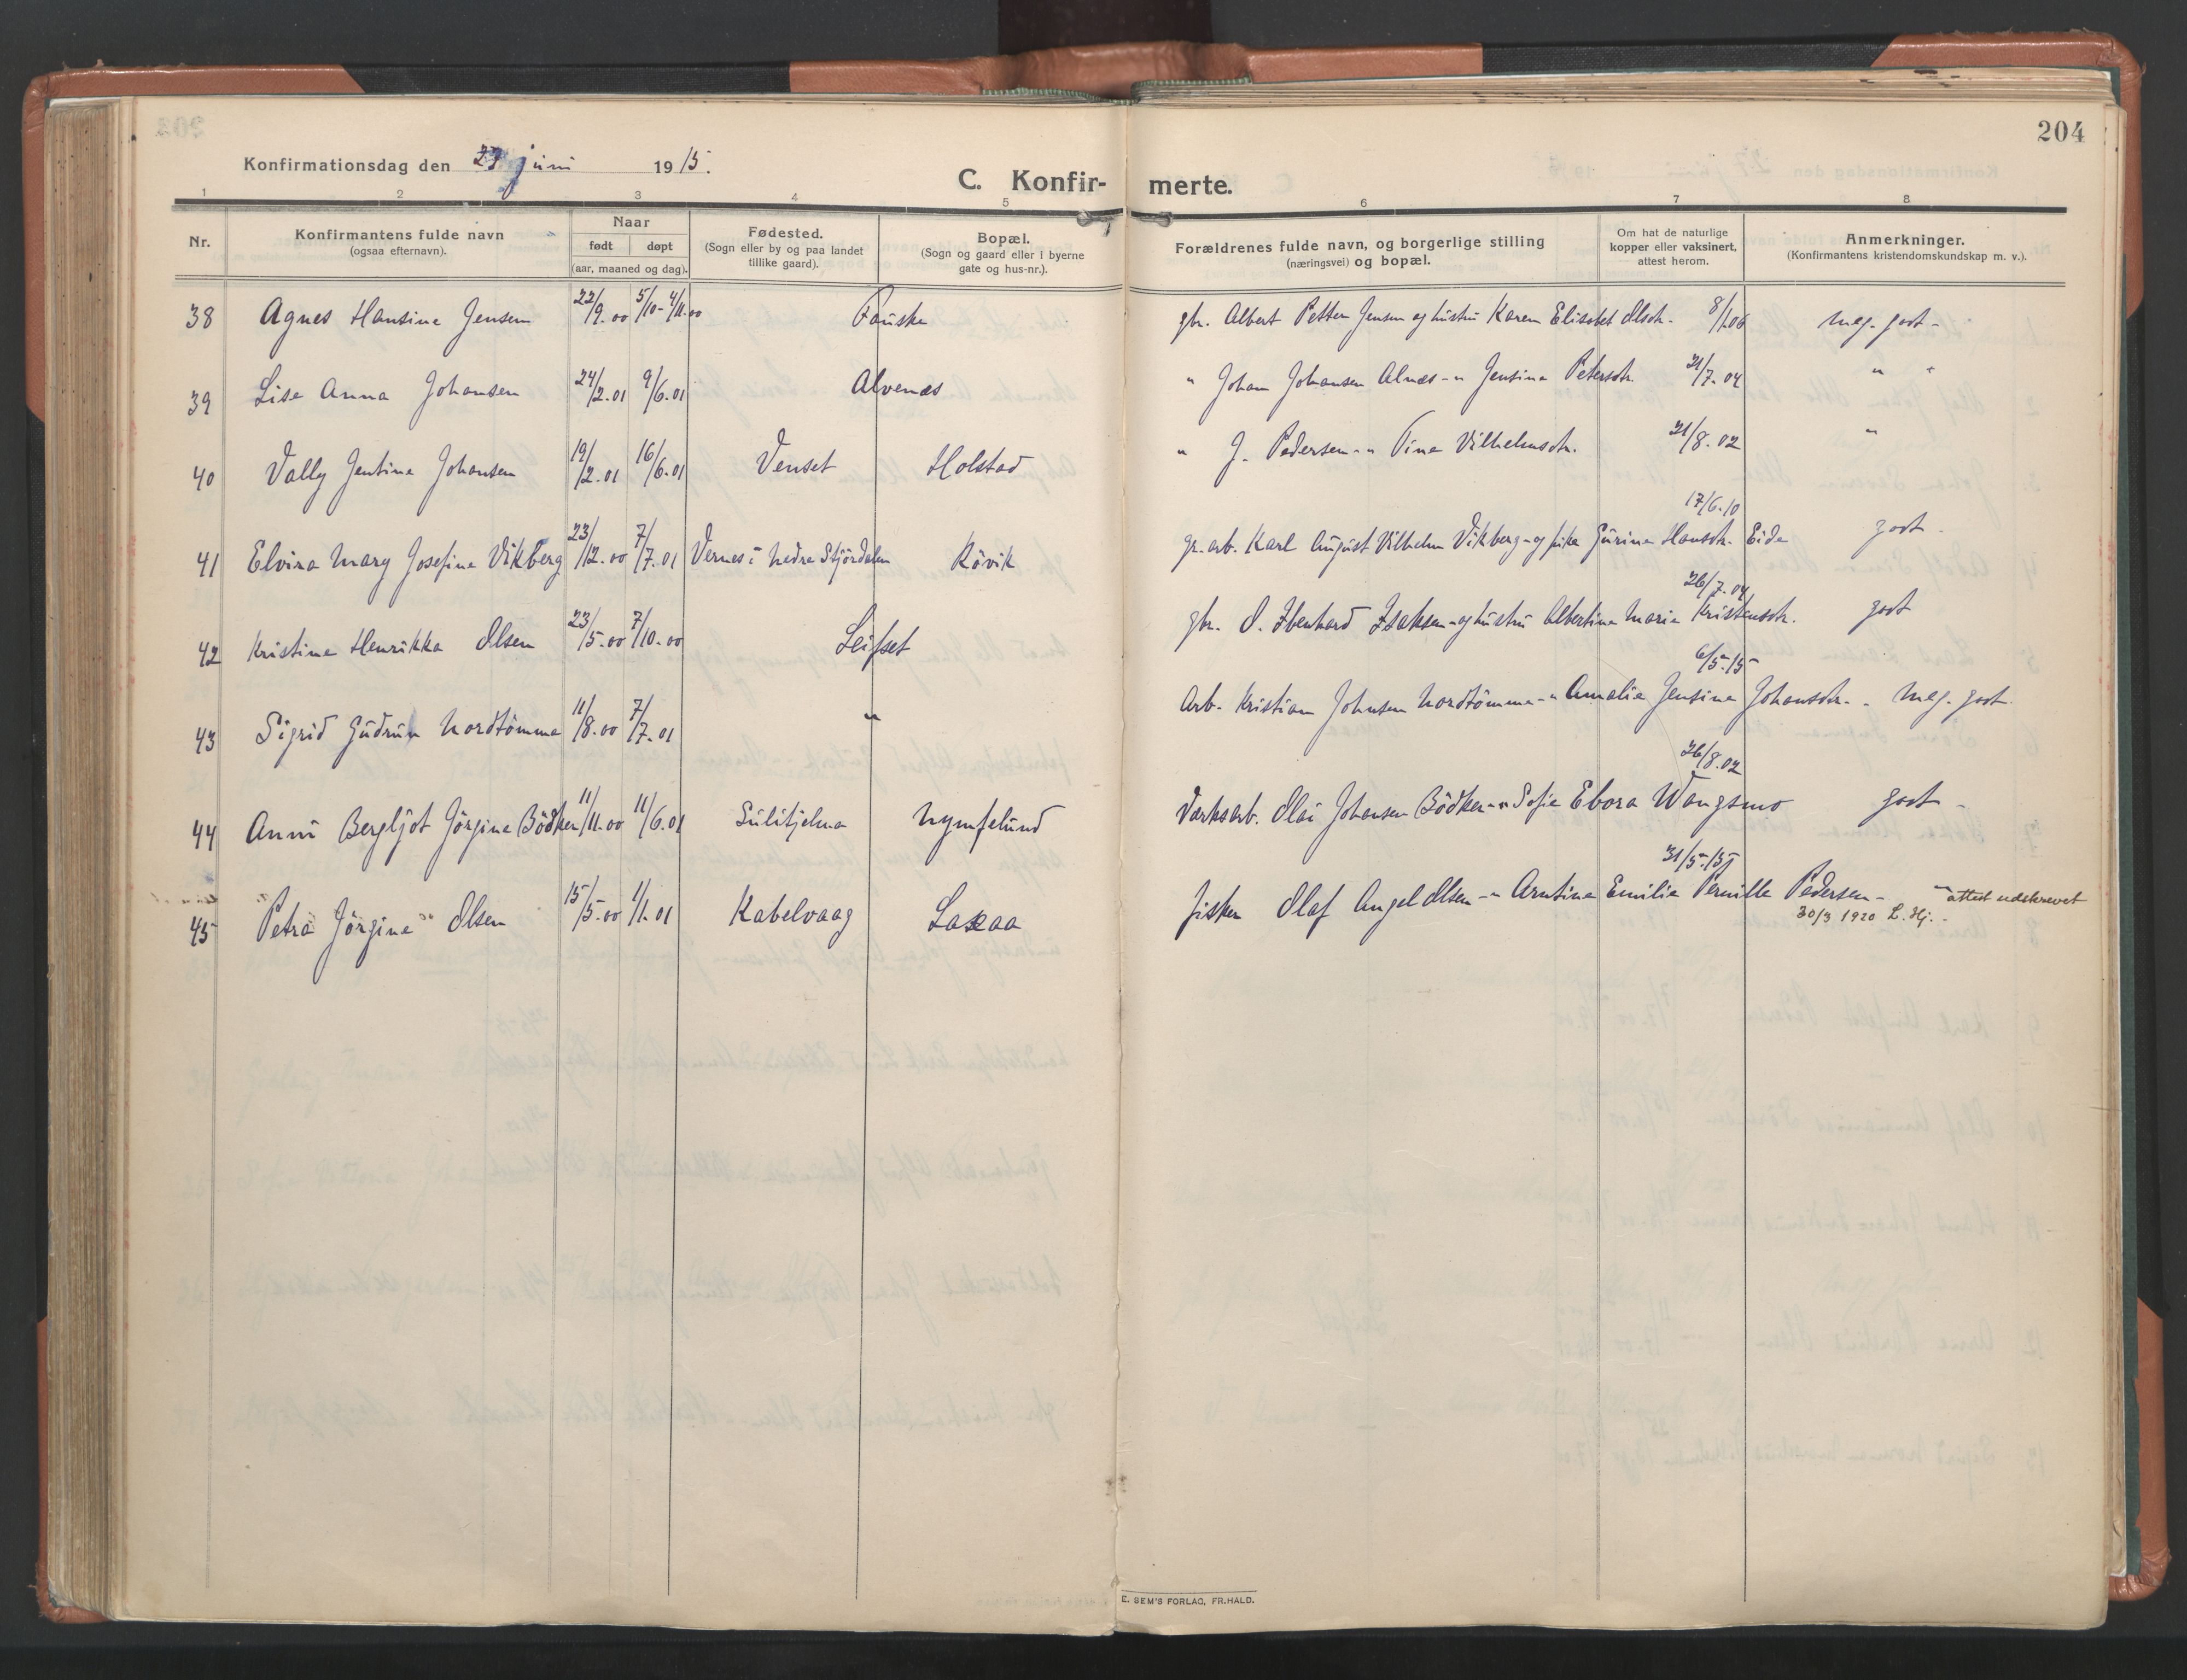 204
Konfirmationsdag den 27 juni 1915.
C. Konfir- merte.
1 2 3 4 5 6 7 8
Nr.
Konfirmantens fulde navn
(ogsaa efternavn).
Naar
født døpt
(aar, maaned og dag).
Fødested.
(Sogn eller by og paa landet
tillike gaard).
Bopæl.
(Sogn og gaard eller i byerne
gate og hus-nr.).
Forældrenes fulde navn, og borgerlige stilling
(næringsvei) og bopæl.
Om hat de naturlige
kopper eller vaksinert,
attest herom.
Anmerkninger.
(Konfirmantens kristendomskundskap m. v.).
38 Agnes Hansine Jensen 22/9.00 5/10-4/11.00 Fauske gbr. Albert Petter Jensen og hustru Karen Elisabet Olsdtr. 8/1.06 meg. godt -
39 Lise Anna Johansen 24/2.01 9/6.01 Alvenes " Johan Johansen Alnæs - " Jensine Petersdtr. 21/7.04 " "
40 Vally Jentine Johansen 19/2.01 16/6.01 Venset Holstad " J. Pedersen - " Tina Vilhelmsdtr. 21/8.02 "
17/6.10
41 Elvira Mary Josefine Vikberg 23/12.00 7/7.01 Vernes i Nedre Stjördalen Rövik gr.arb. Karl August Vilhelm Vikberg - og pike Gurine Hansdtr. Eide godt -
26/7.04
42 Kristine Henrikke Olsen 23/5.00 7/10.00 Leifset gbr. O. Ibenhard Isaksen - og hustru Albertine Marie Kristensdtr. godt
6/5.15
43 Sigrid Gudrun Nordtömme 11/8.00 7/7.01 " Arb. Kristian Johnsen Nordtömme - " Amalie Jensine Johansdtr. - meg. godt.
26/8.02
44 Anni Bergljot Jörgine Bödker 11/11.00 11/6.01 Sulitjelma Nymfelund Værksarb. Olai Johansen Bödker - " Sofie Ebora Wangsmo godt -
31/5.15
45 Petra Jörgine Olsen 15/5.00 1/1.01 Kabelvaag Laxaa fisker Olaf Angel Olsen - " Arntine Emilie Pernille Pedersen - " attest udskrevet
30/3 1920 L. Hj. -
E. SEM'S FORLAG, FR.HALD.